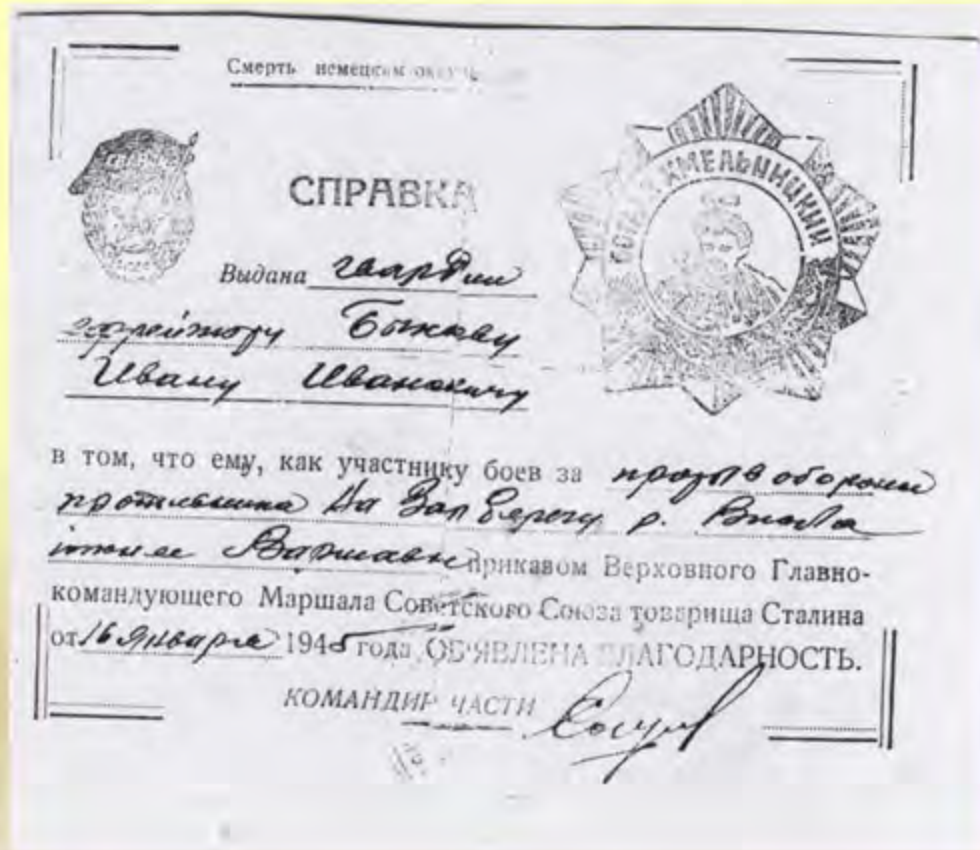 Смерть немецким
СПРАВКА
БОГДАН ХМЕЛЬНИЦКИЙ
Выдана гвардии
ефрейтору Быкову
Ивану Ивановичу
в том, что ему, как участнику боев за прорыв обороны
противника на Зап берегу р. Висла
южнее Варшавы приказом Верховного Главно-
командующего Маршала Советского Союза товарища Сталина
от 16 января 1945 года ОБ'ЯВЛЕНА БЛАГОДАРНОСТЬ.
КОМАНДИР ЧАСТИ